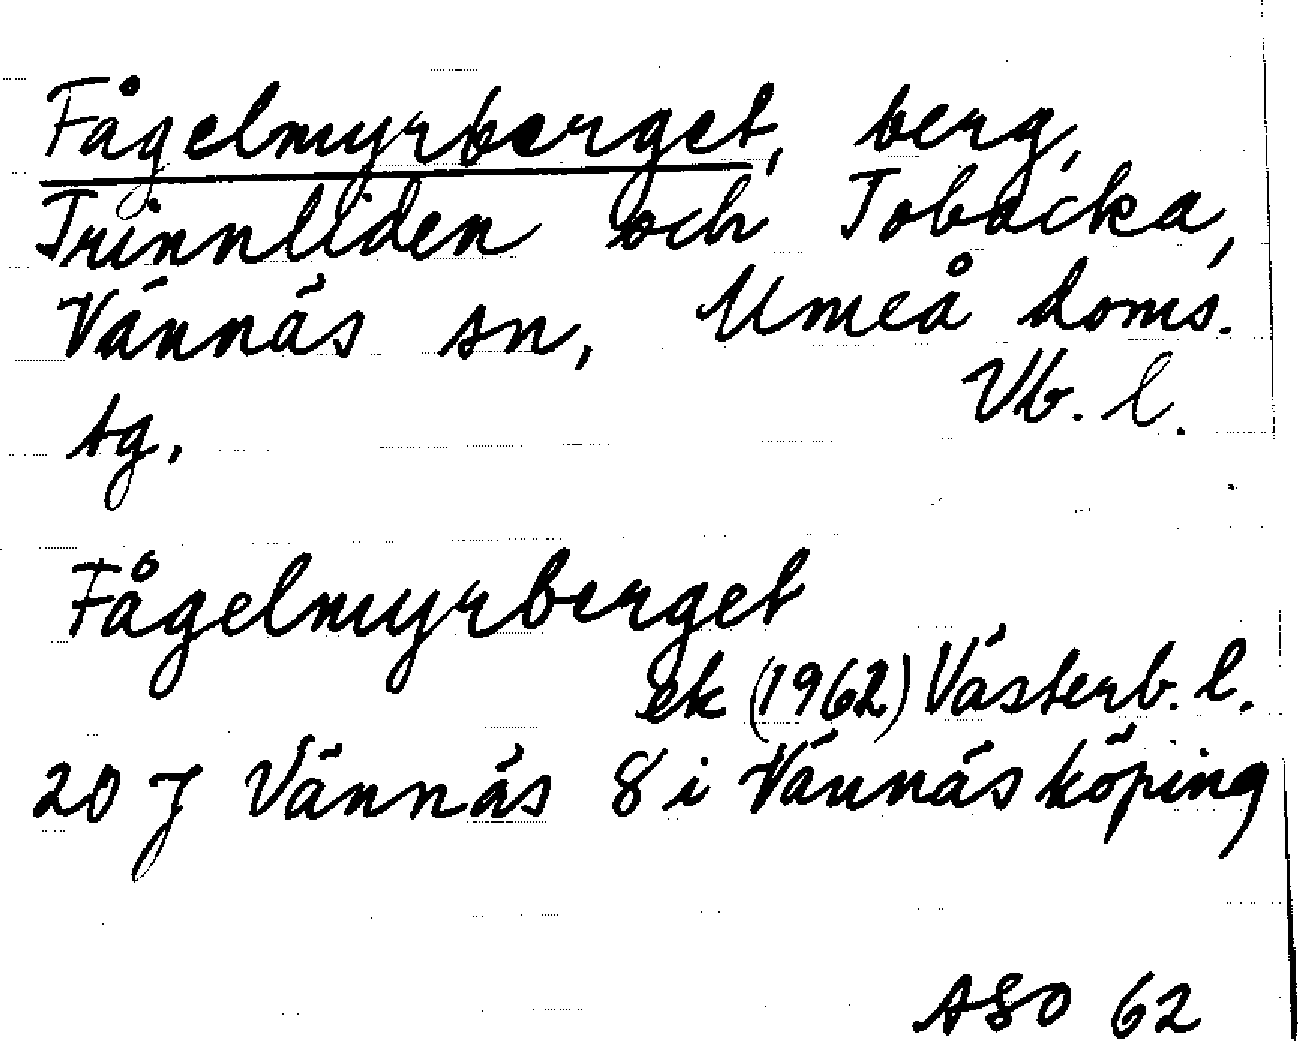 Fågelmyrberget, berg,
Trinnliden och Tobacka,
Vännäs sn, Umeå doms.
Vb. l.
sg.
Fågelmyrberget
ek (1962) Västerb. l.
20 J Vännäs 8 i Vännäs köping
ASO 62